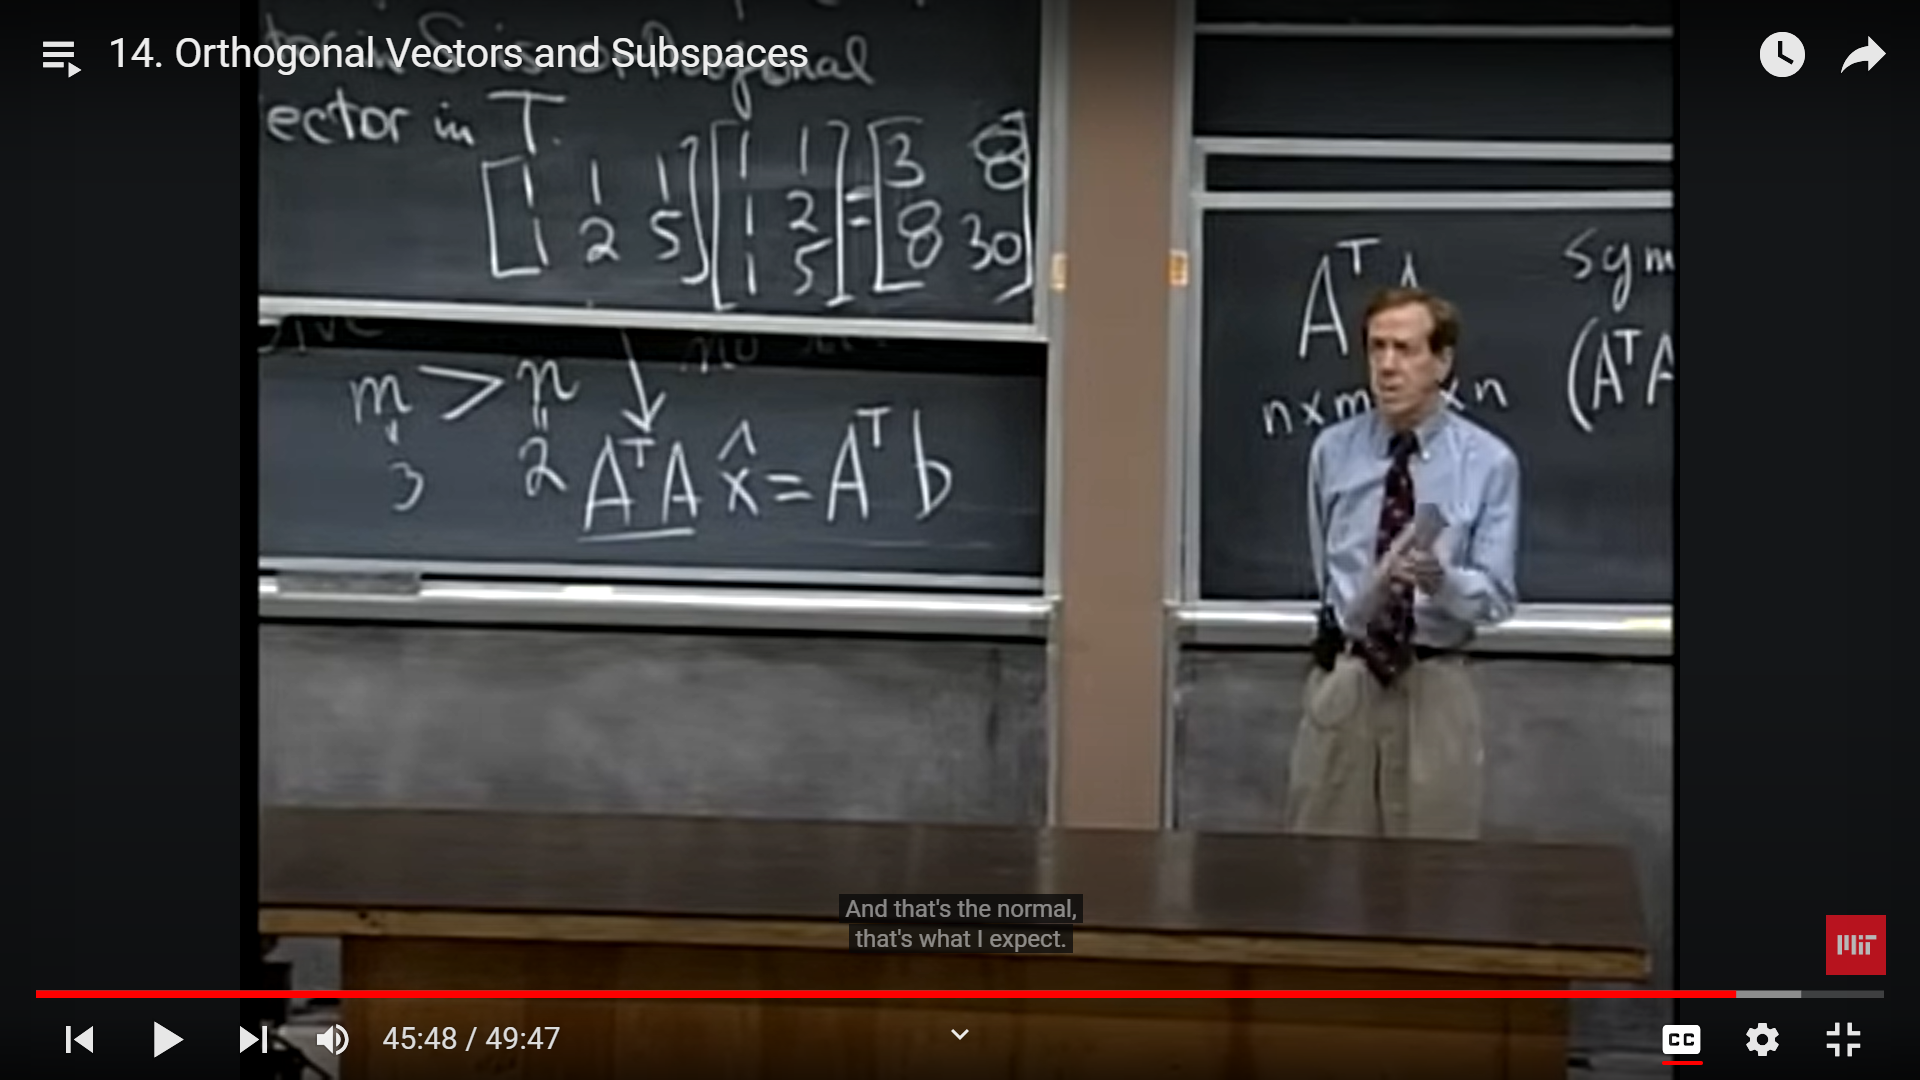 14. Orthogonal Vectors and Subspaces
ector in T.
[1 1 1] [1 1] = [3 8]
[1 2 5] [1 2] [8 30]
[1 5]
m > n
3 2 AᵀA x̂ = Aᵀb
Aᵀ sym
n×m ×n (AᵀA
And that's the normal,
that's what I expect.
MIT
45:48 / 49:47
CC